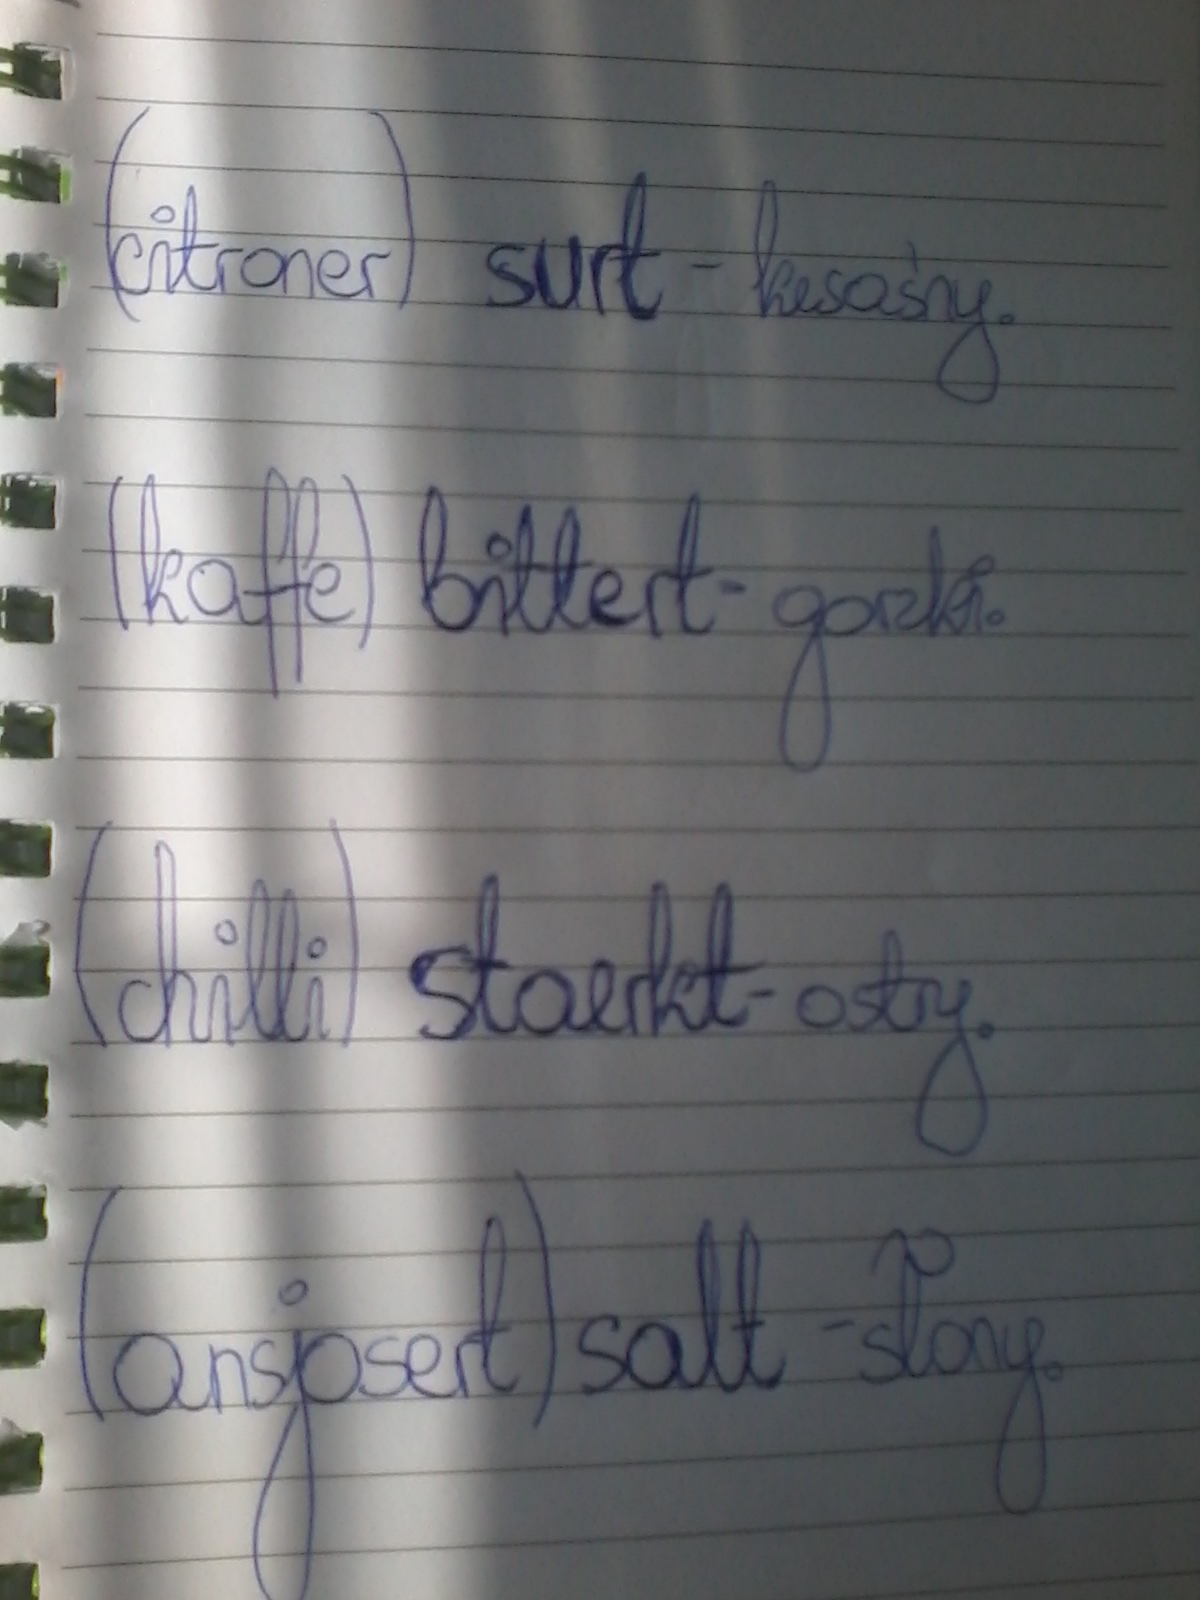 (citroner) surt - kwsaśny.
(kaffe) bittert - gorzki.
(chilli) staerkt - ostry.
(ansjosert) salt - słony.